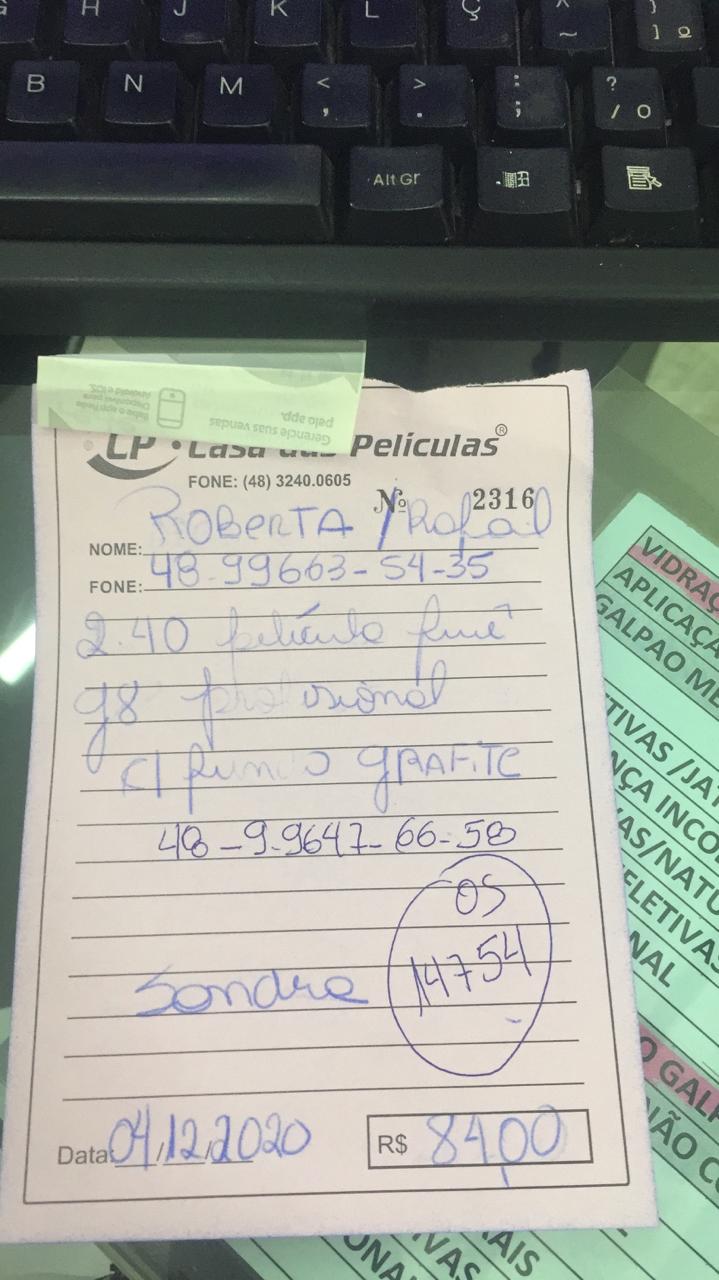 G H J K L Ç ^ ~ } ] º
B N M < , > . : ; ? / O
Alt Gr
Gerencie suas vendas
pelo app.
Baixe o app Rede
Disponível para
Android e iOS.
LP • Casa das Películas®
FONE: (48) 3240.0605
Nº 2316
NOME: ROBERTA / Rafael
FONE: 48-99663-54-35
2.40 película fumê
g8 profissional
c/ fundo GRAFITE
48-9.9647-66-58
OS
14754
Sandra
Data: 04/12/2020
R$ 84,00
VIDRAÇ
APLICAÇA
GALPAO ME
TIVAS /JAT
NÇA INCO
AS/NATU
ELETIVAS
NAL
O GALP
NÃO CO
AIS
IVAS
ONAL